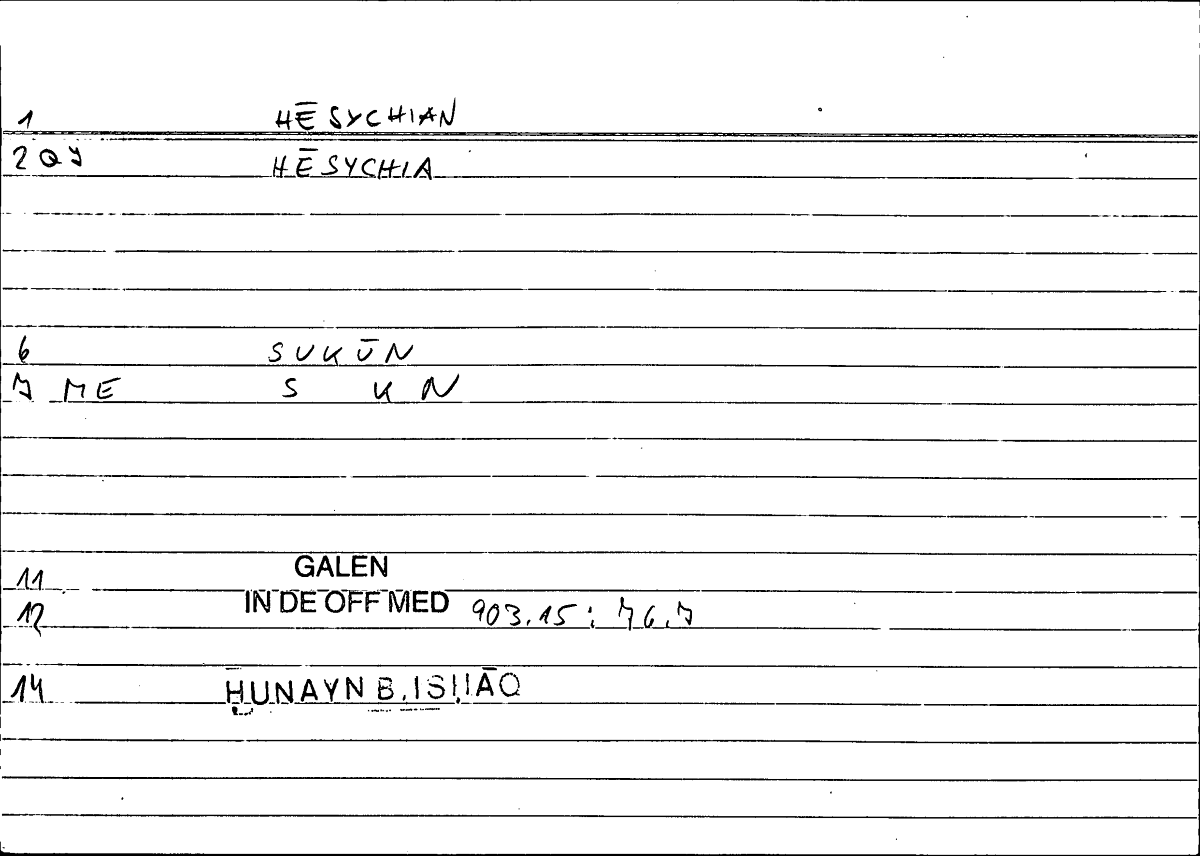 1 HĒSYCHIAN
2 QJ HĒSYCHIA
6 SUKŪN
7 ME S K N
11 GALEN
12 IN DE OFF MED 903.15 : 76.7
14 ḤUNAYN B. ISḤĀQ